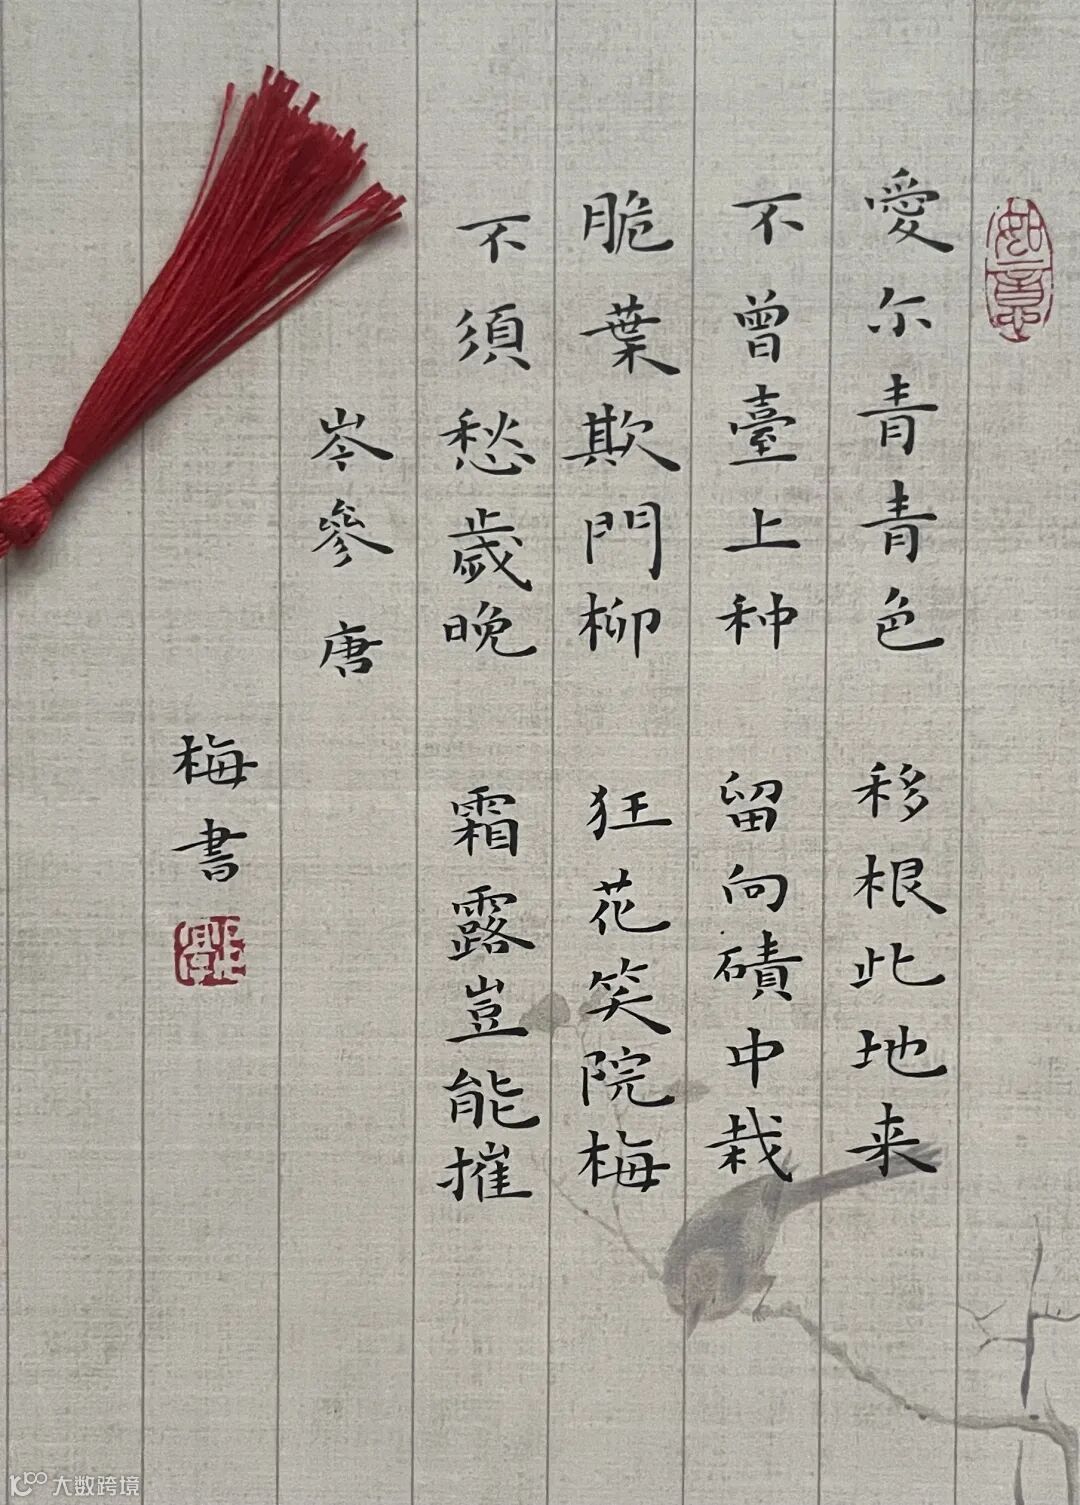 如意
愛尔青青色 移根此地来
不曾臺上种 留向磧中栽
脆葉欺門柳 狂花笑院梅
不須愁歲晚 霜露豈能摧
岑參 唐
梅書
大数跨境